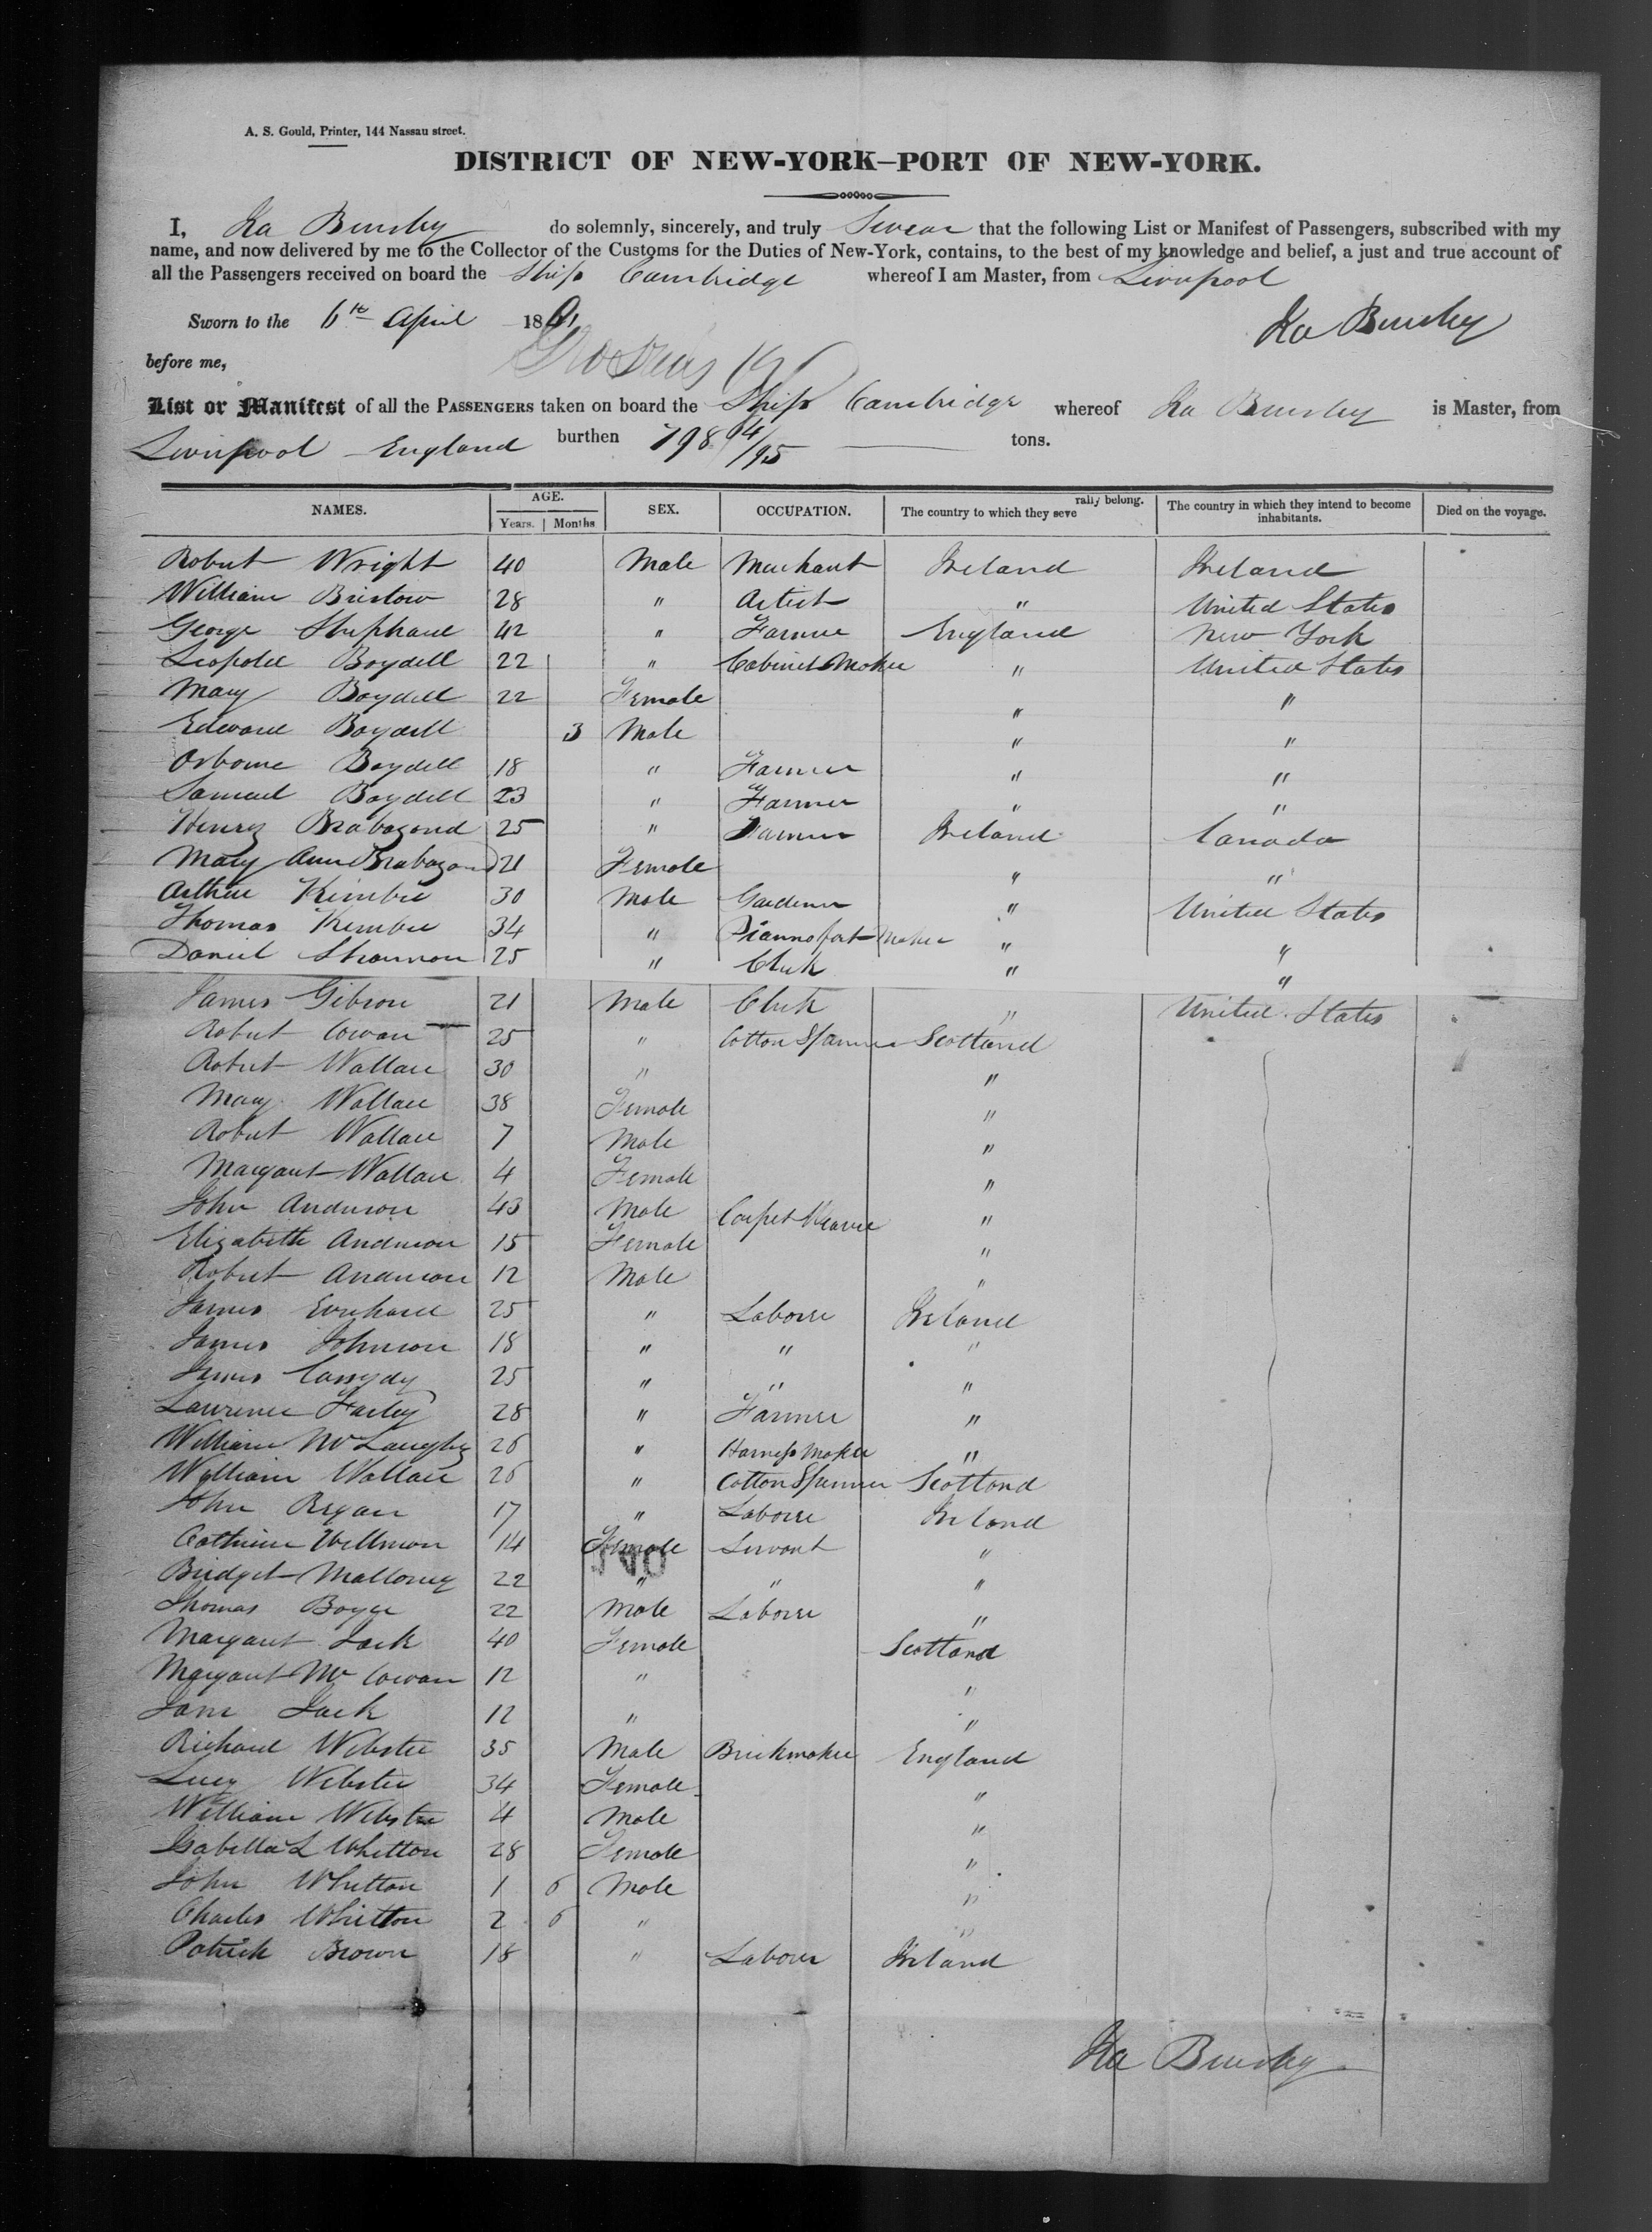 A. S. Gould, Printer, 144 Nassau street.
DISTRICT OF NEW-YORK–PORT OF NEW-YORK.
I, Ira Bursley do solemnly, sincerely, and truly Swear that the following List or Manifest of Passengers, subscribed with my
name, and now delivered by me to the Collector of the Customs for the Duties of New-York, contains, to the best of my knowledge and belief, a just and true account of
all the Passengers received on board the Ship Cambridge whereof I am Master, from Liverpool
Sworn to the 6th April 18
Ira Bursley
before me,
List or Manifest of all the PASSENGERS taken on board the Ship Cambridge whereof Ira Bursley is Master, from
Liverpool England burthen 798 94/95 tons.
NAMES. AGE. SEX. OCCUPATION. The country to which they severally belong. The country in which they intend to become inhabitants. Died on the voyage.
Years. Months
Robert Wright 40 Male Merchant Ireland Ireland
William Bristow 28 " Artist " United States
George Shephard 42 " Farmer England New York
Leopold Boydell 22 " Cabinet Maker " United States
Mary Boydell 22 Female " "
Edward Boydell 3 Male " "
Osborne Boydell 18 " Farmer " "
Samuel Boydell 23 " Farmer " "
Henry Brabazond 25 " Farmer Ireland Canada
Mary Ann Brabazond 21 Female " "
Arthur Kimbie 30 Male Gardener " United States
Thomas Kimbie 34 " Piannofort Maker " "
Daniel Shannon 25 " Clerk " "
James Gibson 21 Male Clerk " United States
Robert Cowan 25 " Cotton Spanner Scotland
Robert Wallace 30 " "
Mary Wallace 38 Female "
Robert Wallace 7 Male "
Margaret Wallace 4 Female "
John Anderson 43 Male Carpet Weaver "
Elizabeth Anderson 15 Female "
Robert Anderson 12 Male "
James Everhard 25 " Laborer Ireland
James Johnson 18 " " "
James Cassydy 25 " " "
Lawrence Farley 28 " Farmer "
William McLaugly 26 " Harness Maker "
William Wallace 26 " Cotton Spanner Scotland
John Regan 17 " Laborer Ireland
Catherine Wellmon 14 Female Servant "
Bridget Malloney 22 " " "
Thomas Boyce 22 Male Laborer "
Margaret Jack 40 Female Scotland
Margaret McCowan 12 " "
Jane Jack 12 " "
Richard Webster 35 Male Brickmaker England
Lucy Webster 34 Female "
William Webster 4 Male "
Isabella L Whitton 28 Female "
John Whitton 1 6 Male "
Charles Whitton 2 6 " "
Patrick Brown 18 " Laborer Ireland
Ira Bursley